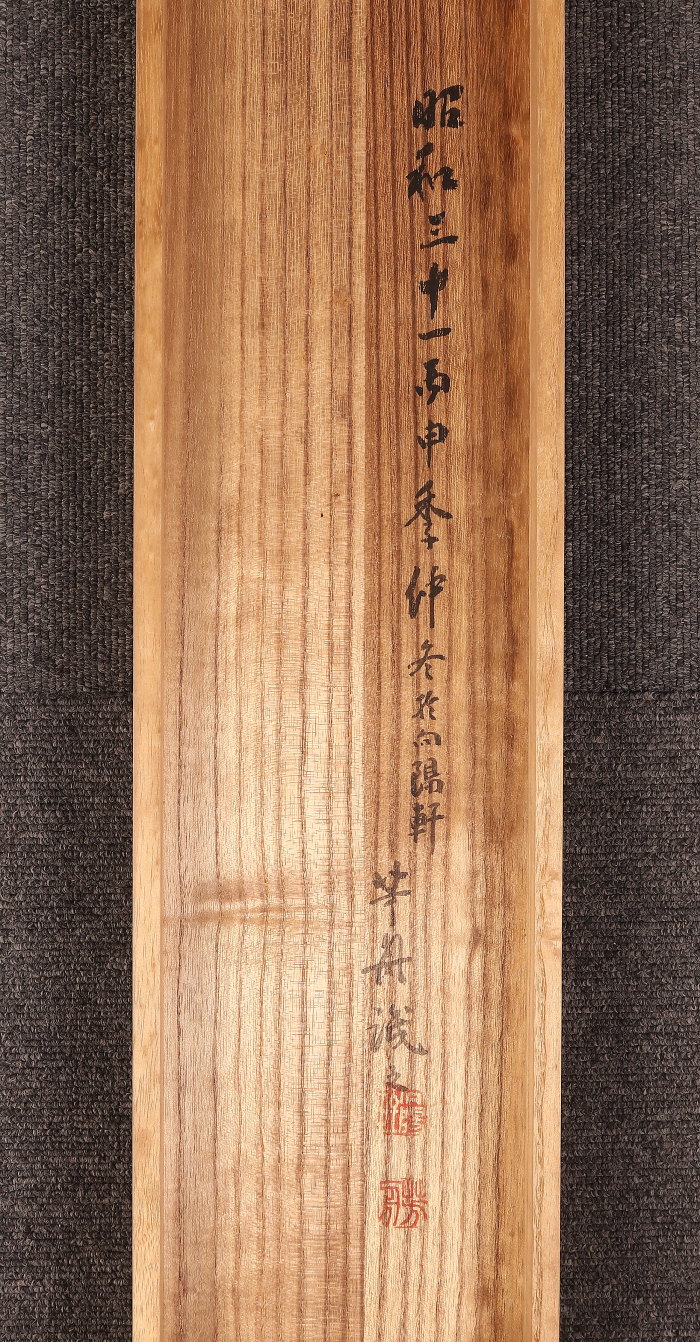 昭和三十一丙申季仲冬於向陽軒
華舟識之